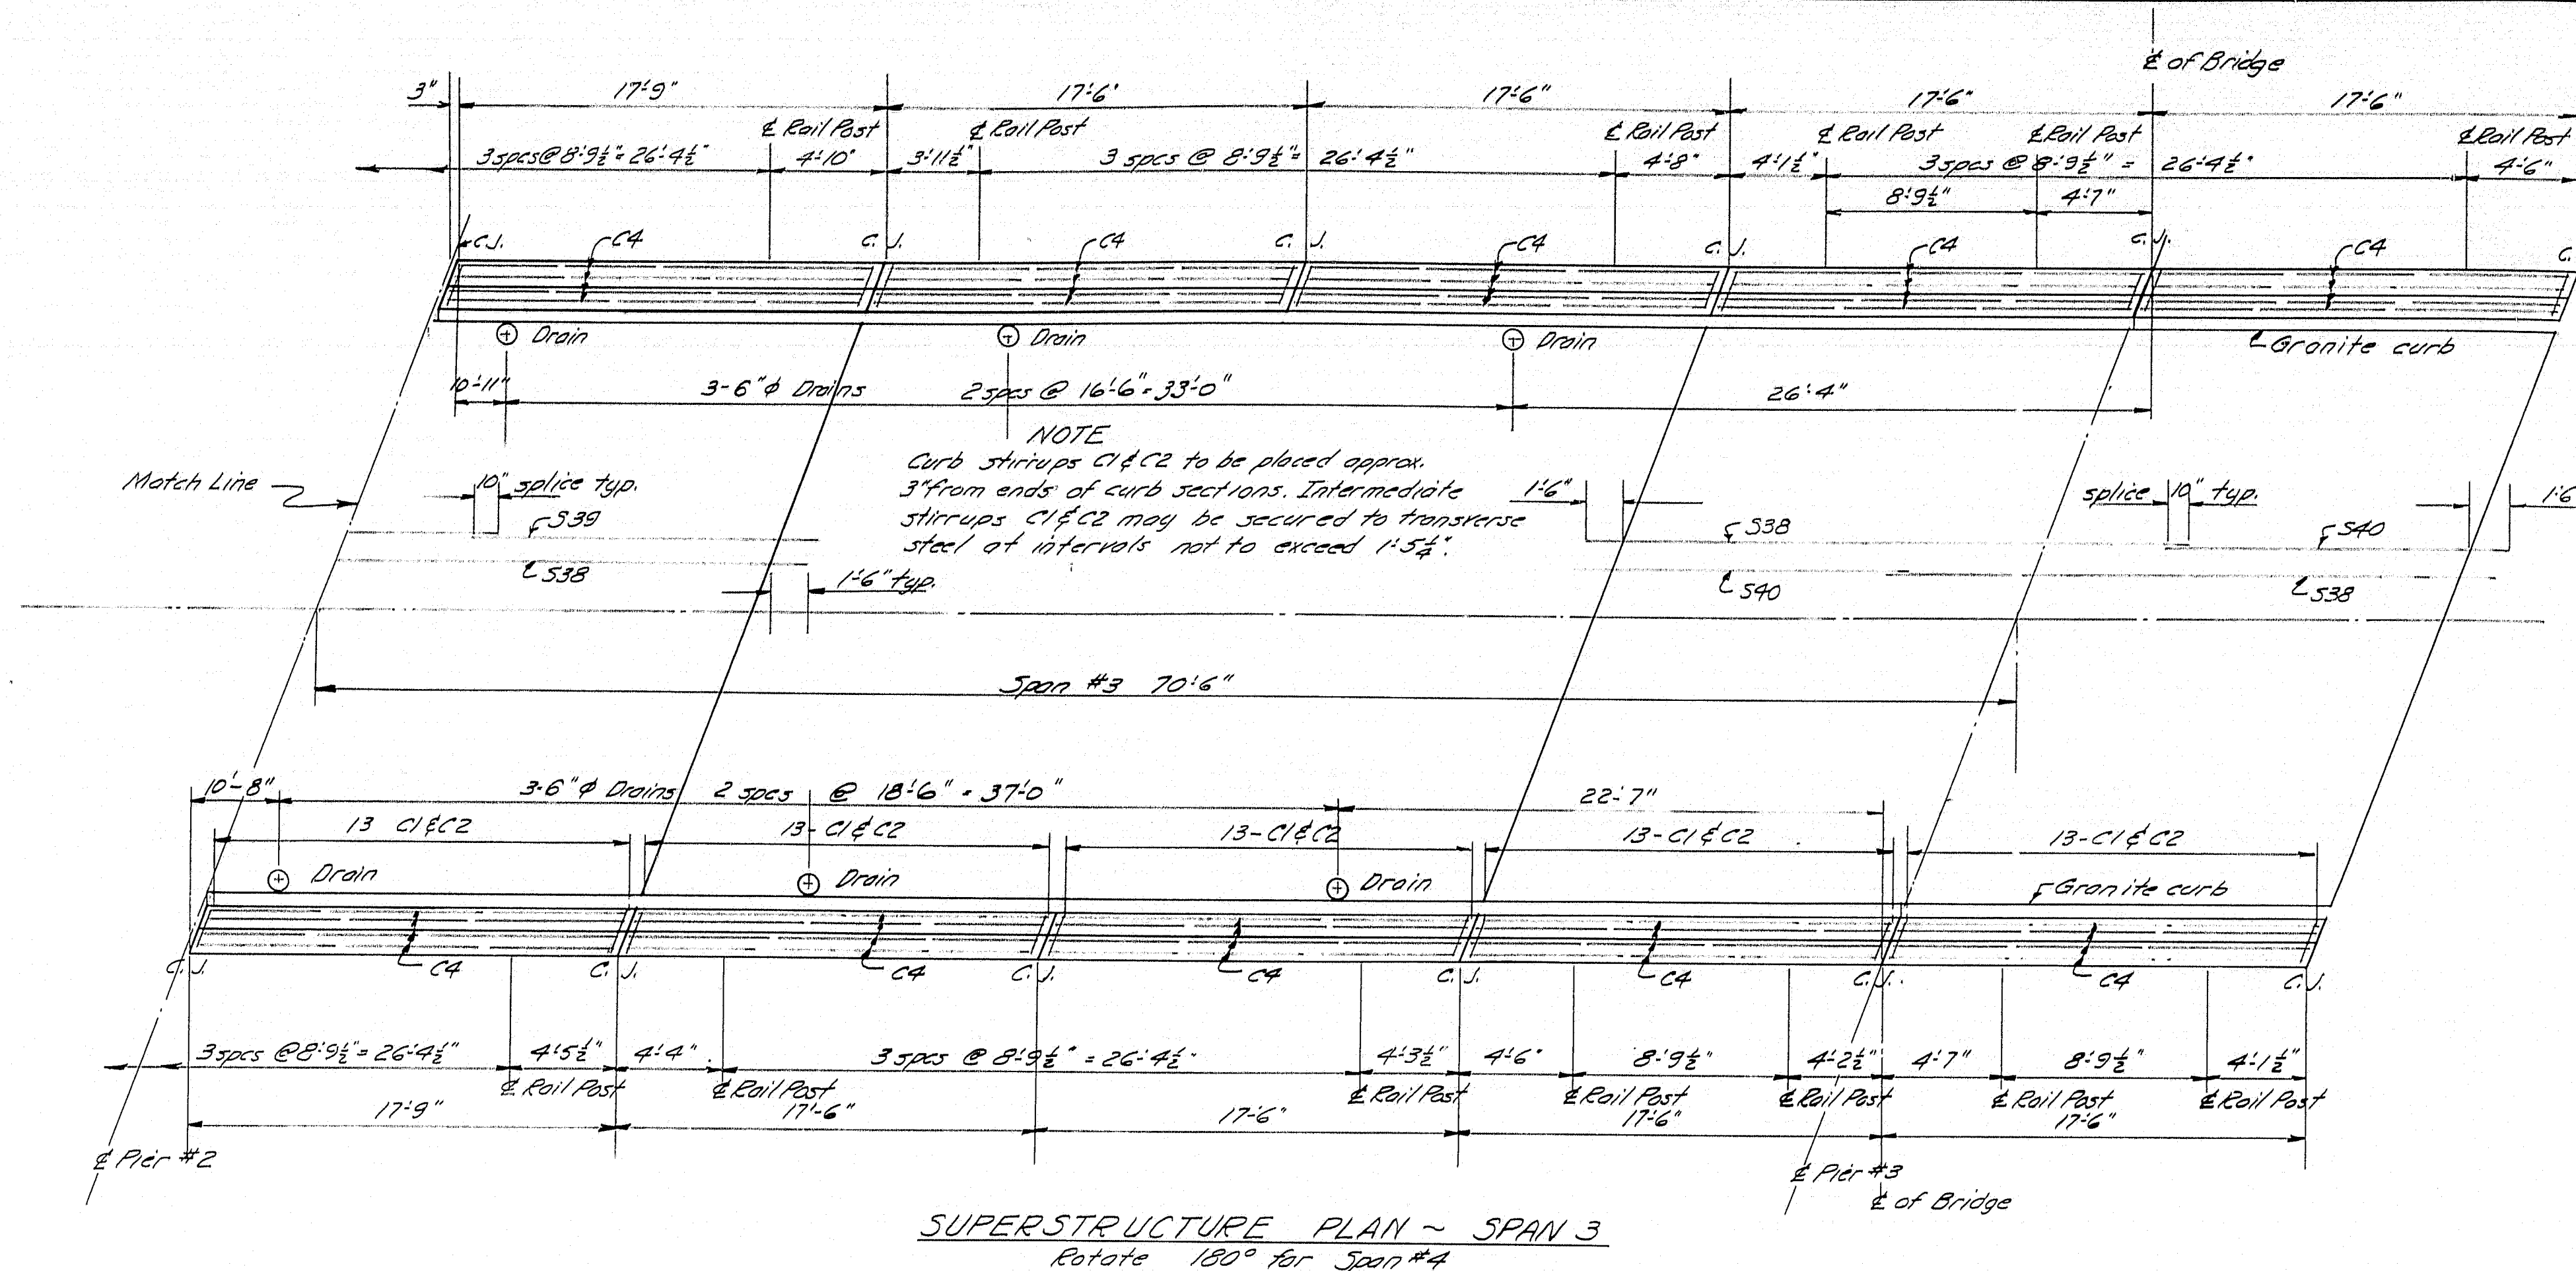 ℄ of Bridge
3" 17'-9" 17'-6" 17'-6" 17'-6" 17'-6"
℄ Rail Post ℄ Rail Post ℄ Rail Post ℄ Rail Post ℄ Rail Post ℄ Rail Post
3 spcs @ 8'-9½" = 26'-4½" 4'-10" 3'-11½" 3 spcs @ 8'-9½" = 26'-4½" 4'-8" 4'-1½" 3 spcs @ 8'-9½" = 26'-4½" 4'-6"
8'-9½" 4'-7"
C.J. C4 C.J. C4 C.J. C4 C.J. C4 C.J. C4 C.
Drain Drain Drain Granite curb
10'-11" 3-6"φ Drains 2 spcs @ 16'-6" = 33'-0" 26'-4"
NOTE
Curb stirrups C1 & C2 to be placed approx.
3" from ends of curb sections. Intermediate
stirrups C1 & C2 may be secured to transverse
steel at intervals not to exceed 1'-5¼".
Match Line
10" splice typ.
S39
S38
1'-6" typ.
1'-6"
S38
S40
splice 10" typ.
1'-6
S40
S38
Span #3 70'-6"
10'-8" 3-6"φ Drains 2 spcs @ 18'-6" = 37'-0" 22'-7"
13 C1 & C2 13-C1 & C2 13-C1 & C2 13-C1 & C2 13-C1 & C2
Drain Drain Drain Granite curb
C.J. C4 C.J. C4 C.J. C4 C.J. C4 C.J. C4 C.J.
3 spcs @ 8'-9½" = 26'-4½" 4'-5½" 4'-4" 3 spcs @ 8'-9½" = 26'-4½" 4'-3½" 4'-6" 8'-9½" 4'-2½" 4'-7" 8'-9½" 4'-1½"
℄ Rail Post ℄ Rail Post ℄ Rail Post ℄ Rail Post ℄ Rail Post ℄ Rail Post ℄ Rail Post
17'-9" 17'-6" 17'-6" 17'-6" 17'-6"
℄ Pier #2
℄ Pier #3
℄ of Bridge
SUPERSTRUCTURE PLAN ~ SPAN 3
Rotate 180° for Span #4